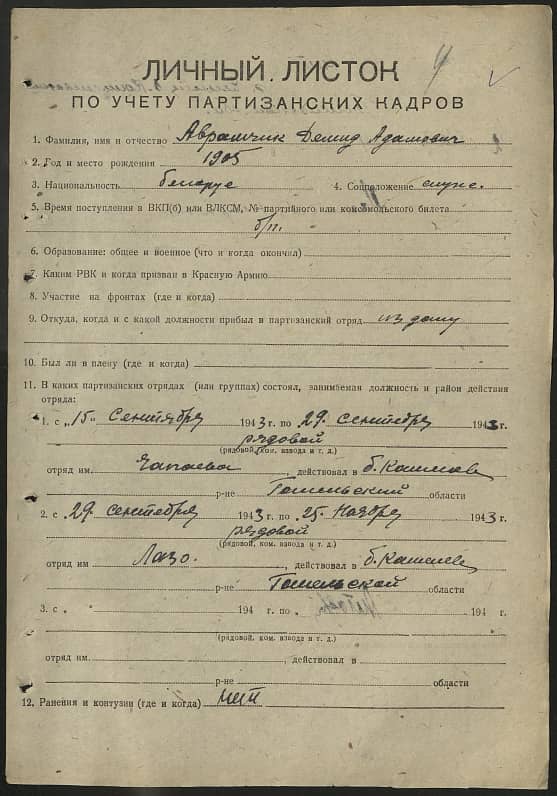 ЛИЧНЫЙ ЛИСТОК
ПО УЧЕТУ ПАРТИЗАНСКИХ КАДРОВ
1. Фамилия, имя и отчество Аврамчик Демид Адамович
2. Год и место рождения 1905
3. Национальность беларус 4. Соцположение служ.
5. Время поступления в ВКП(б) или ВЛКСМ, № партийного или комсомольского билета
б/п.
6. Образование: общее и военное (что и когда окончил)
7. Каким РВК и когда призван в Красную Армию
8. Участие на фронтах (где и когда)
9. Откуда, когда и с какой должности прибыл в партизанский отряд из дому
10. Был ли в плену (где и когда)
11. В каких партизанских отрядах (или группах) состоял, занимаемая должность и район действия
отряда:
1. с „15“ Сентября 1943 г. по 29 сентебря 1943 г.
рядовой
(рядовой, ком. взвода и т. д.)
отряд им. Чапаева, действовал в б. Кошелев
р-не Гомельский области
2. с 29 сентебря 1943 г. по 25 Ноября 1943 г.
рядовой
(рядовой, ком. взвода и т. д.)
отряд им. Лазо., действовал в б. Кошелев
р-не Гомельской области
3. с 194 г. по 194 г.
(рядовой, ком. взвода и т. д.)
отряд им. , действовал в
р-не области
12. Ранения и контузии (где и когда) нет